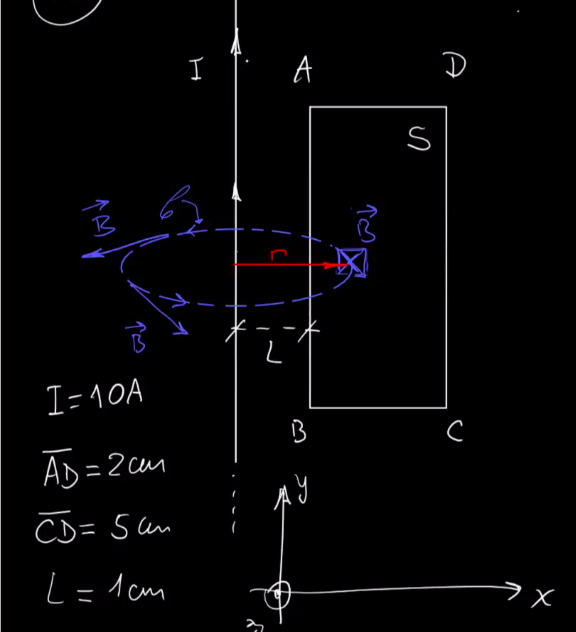 I
A
D
S
B
b
B
r
L
B
B
C
I=10A
AD = 2cm
CD = 5cm
L = 1cm
y
x
z